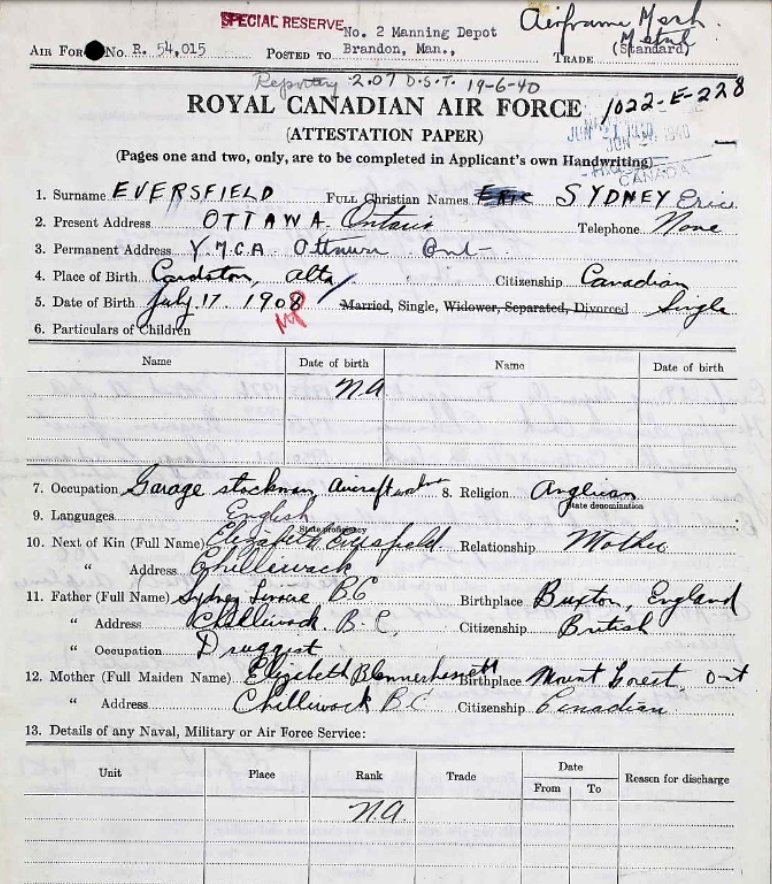 SPECIAL RESERVE No. 2 Manning Depot Airframe Mech.
AIR FOR No. R. 54,015 POSTED TO Brandon, Man., TRADE Metal (Standard)
Reporting 2.07 D.S.T. 19-6-40
ROYAL CANADIAN AIR FORCE 1022-E-228
(ATTESTATION PAPER) JUN 21 1940
(Pages one and two, only, are to be completed in Applicant's own Handwriting)
CANADA
1. Surname EVERSFIELD FULL Christian Names ERIC SYDNEY Eric
2. Present Address OTTAWA Ontario Telephone None
3. Permanent Address Y.M.C.A Ottawa Ont
4. Place of Birth Cardston, Alta Citizenship Canadian
5. Date of Birth July 17 1908 Married, Single, Widower, Separated, Divorced Single
6. Particulars of Children
Name Date of birth Name Date of birth
N.A
7. Occupation Garage stockman, Aircraft 8. Religion Anglican
State denomination
9. Languages English
State proficiency
10. Next of Kin (Full Name) Elizabeth Eversfield Relationship Mother
" Address Chilliwack
11. Father (Full Name) Sydney B.C Birthplace Buxton, England
" Address Chilliwack B.C. Citizenship British
" Occupation Druggist
12. Mother (Full Maiden Name) Elizabeth Blennerhassett Birthplace Mount Forest, Ont
" Address Chilliwack B.C Citizenship Canadian
13. Details of any Naval, Military or Air Force Service:
Unit Place Rank Trade Date Reason for discharge
From To
N.A.